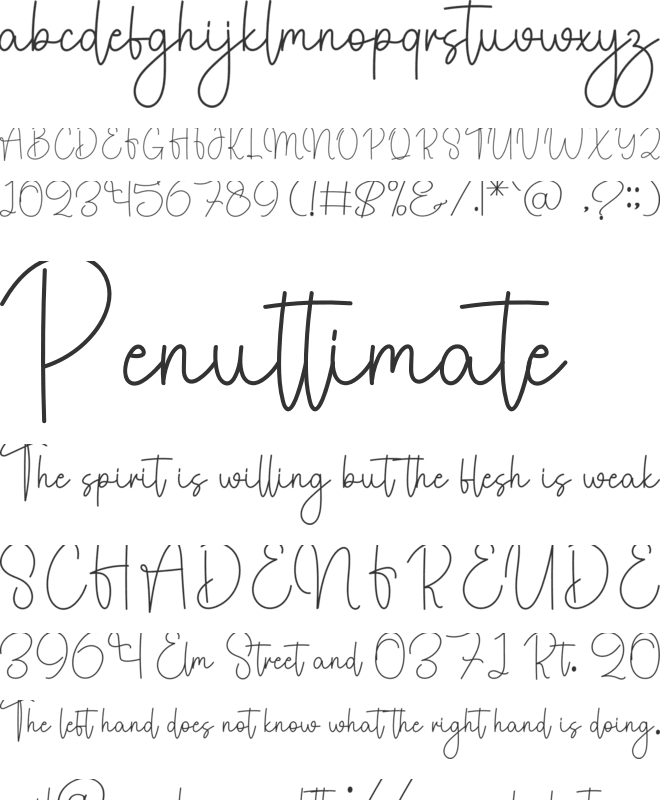 abcdefghijklmnopqrstuvwxyz
ABCDEFGHIJKLMNOPQRSTUVWXYZ
1023456789(!#$%&/.|*`@ ,?:;)
Penuttimate
The spirit is willing but the flesh is weak
SCHADENFREUDE
3964 Elm Street and 0371 Rt. 20
The left hand does not know what the right hand is doing.